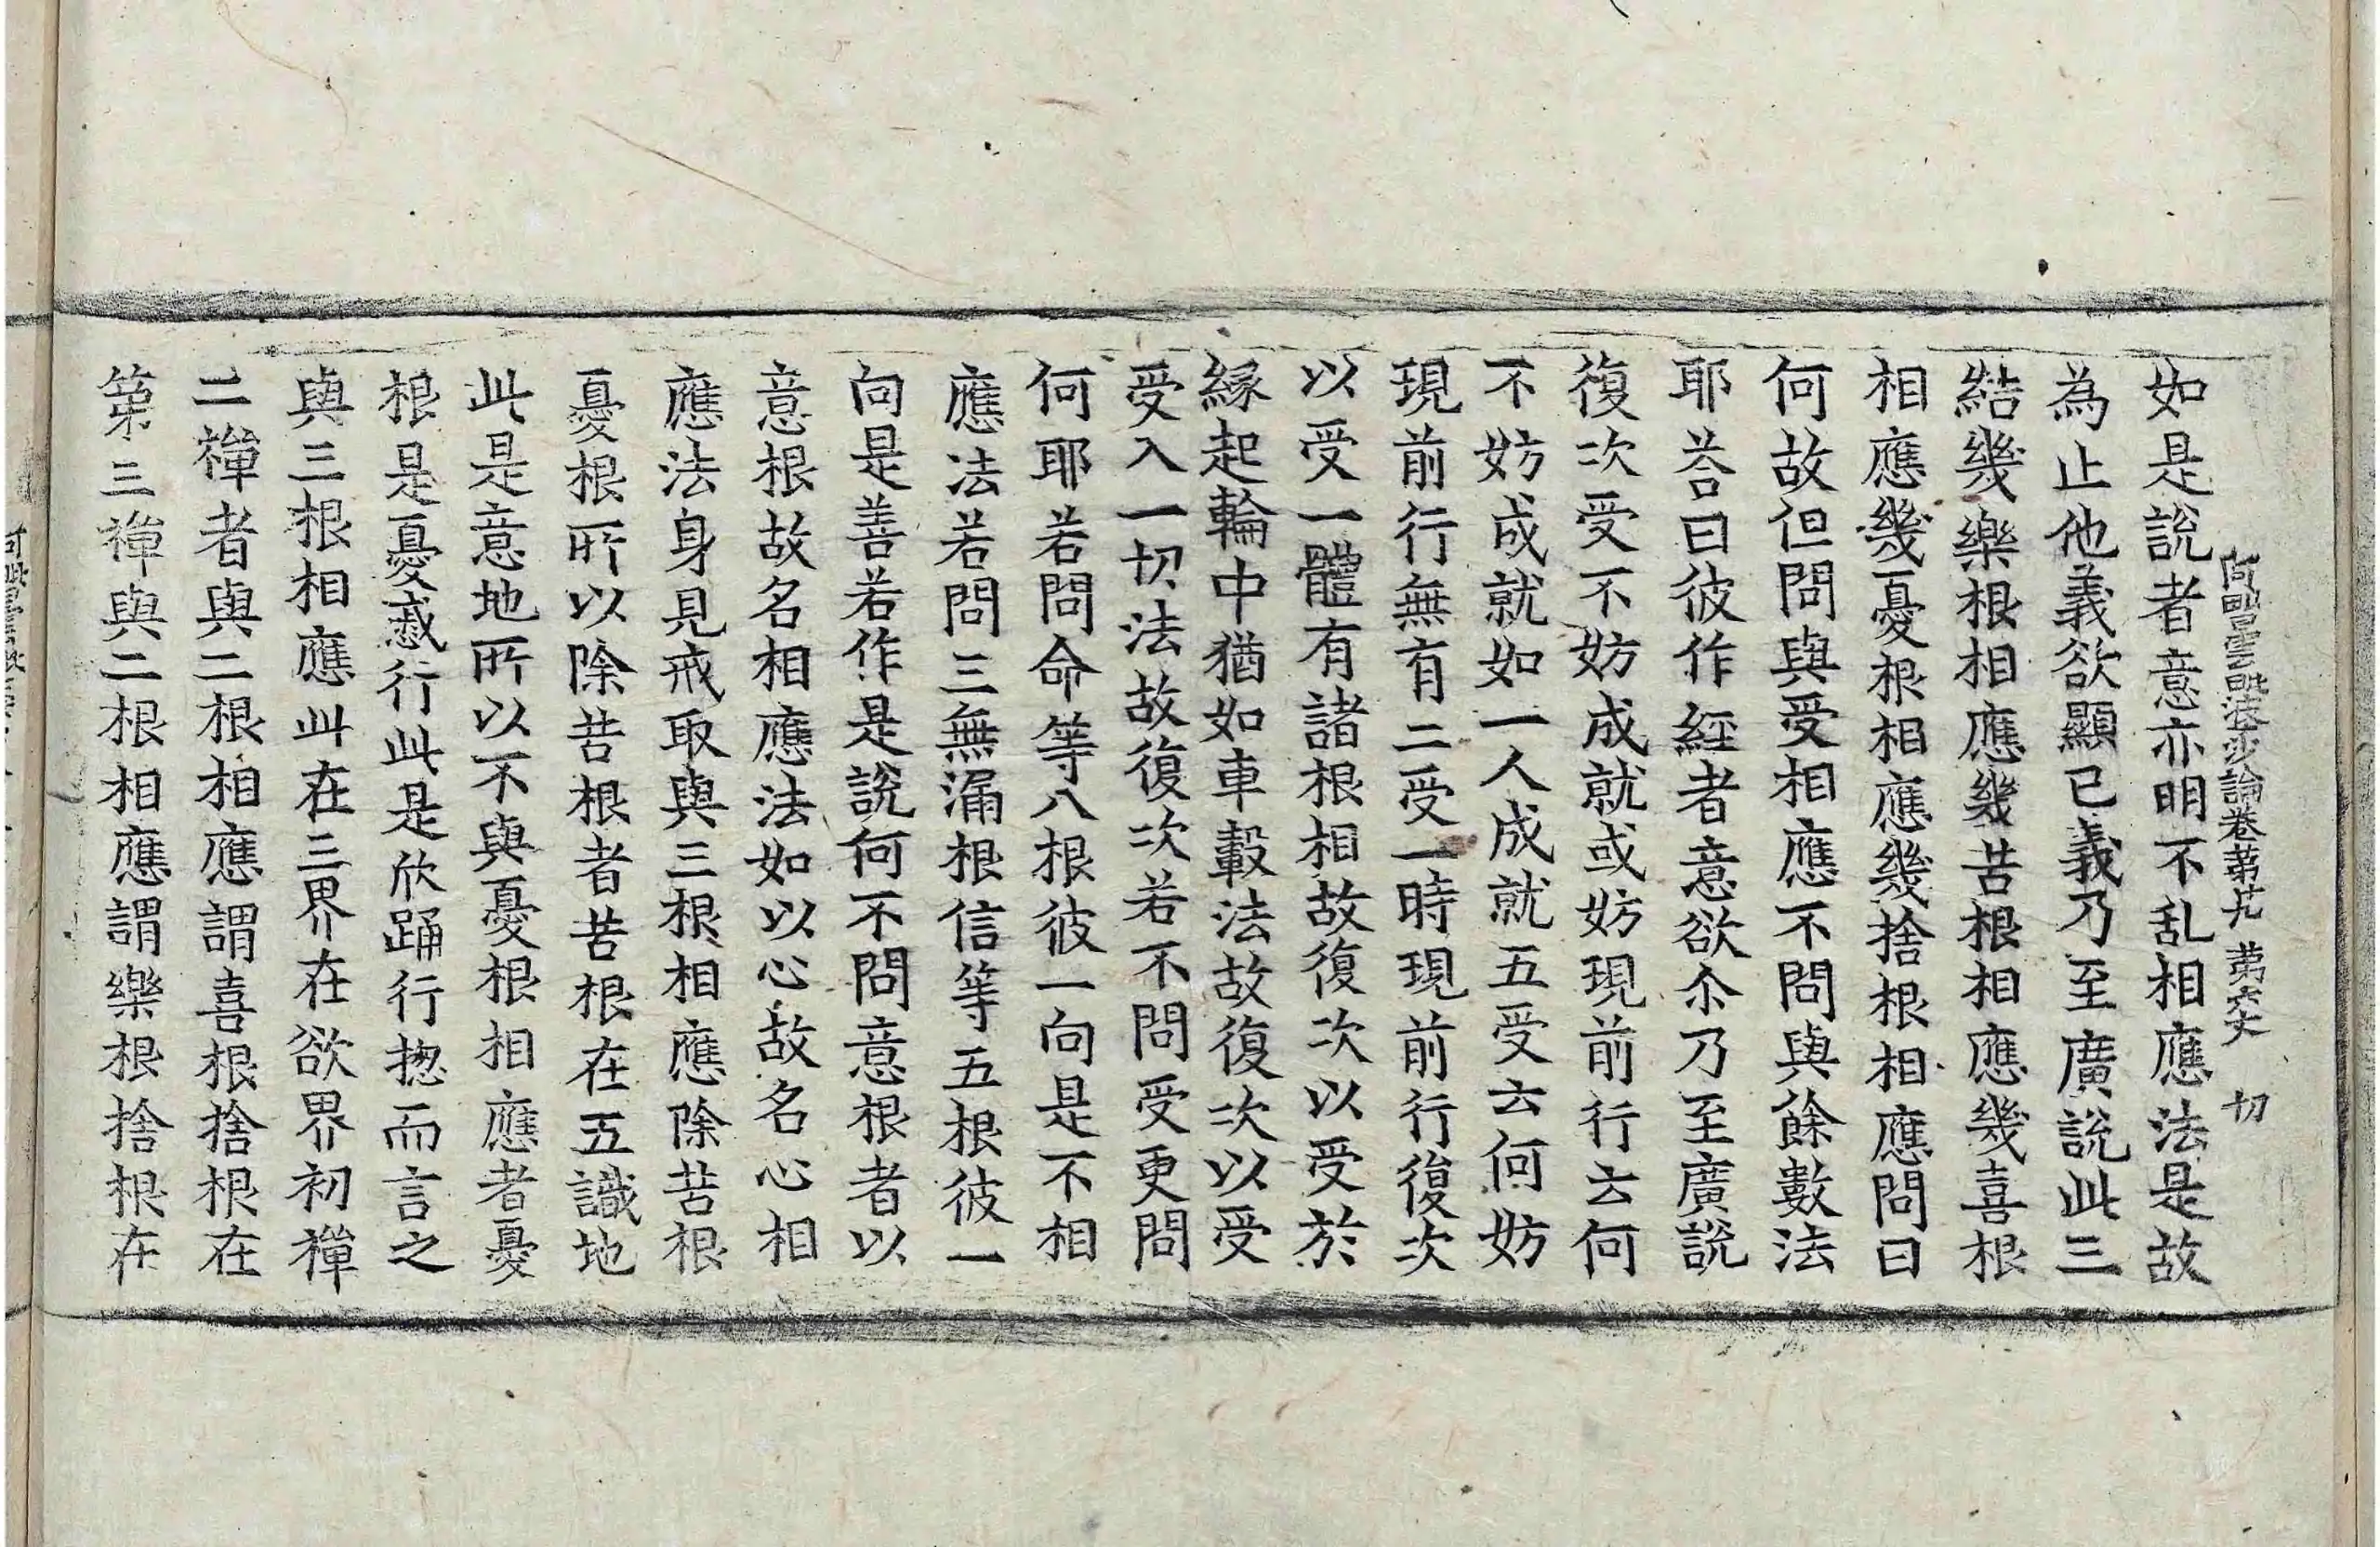 阿毗曇毗婆沙論卷第廿九 第六丈 切
如是說者意亦明不乱相應法是故
為止他義欲顯已義乃至廣說此三
結幾樂根相應幾苦根相應幾喜根
相應幾憂根相應幾捨根相應問曰
何故但問與受相應不問與餘數法
耶荅曰彼作經者意欲尒乃至廣說
復次受不妨成就或妨現前行云何
不妨成就如一人成就五受云何妨
現前行無有二受一時現前行復次
以受一體有諸根相故復次以受於
緣起輪中猶如車轂法故復次以受
受入一切法故復次若不問受更問
何耶若問命等八根彼一向是不相
應法若問三無漏根信等五根彼一
向是善若作是說何不問意根者以
意根故名相應法如以心故名心相
應法身見戒取與三根相應除苦根
憂根所以除苦根者苦根在五識地
此是意地所以不與憂根相應者憂
根是憂慼行此是欣踊行揔而言之
與三根相應此在三界在欲界初禪
二禪者與二根相應謂喜根捨根在
第三禪與二根相應謂樂根捨根在